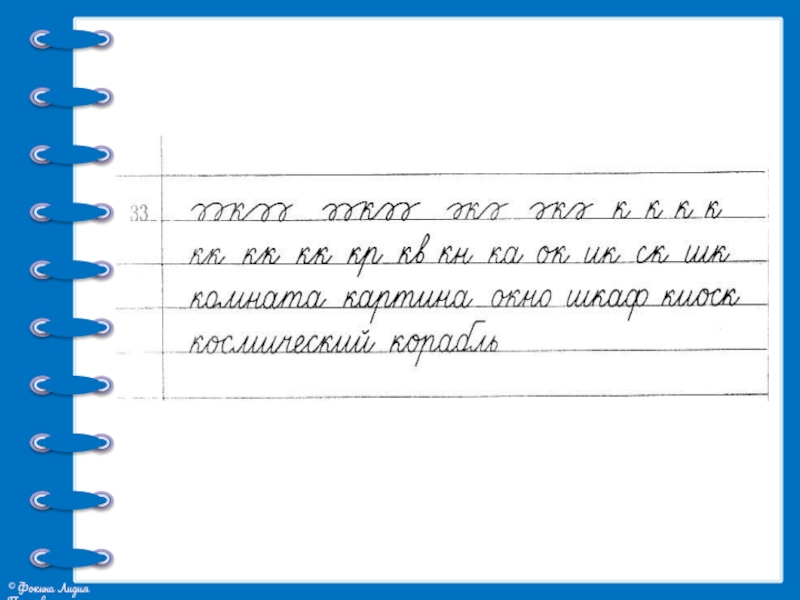 33 к к к к к к к к
кк кк кк кр кв кн ка ок ик ск шк
комната картина окно шкаф киоск
космический корабль
© Фокина Лидия